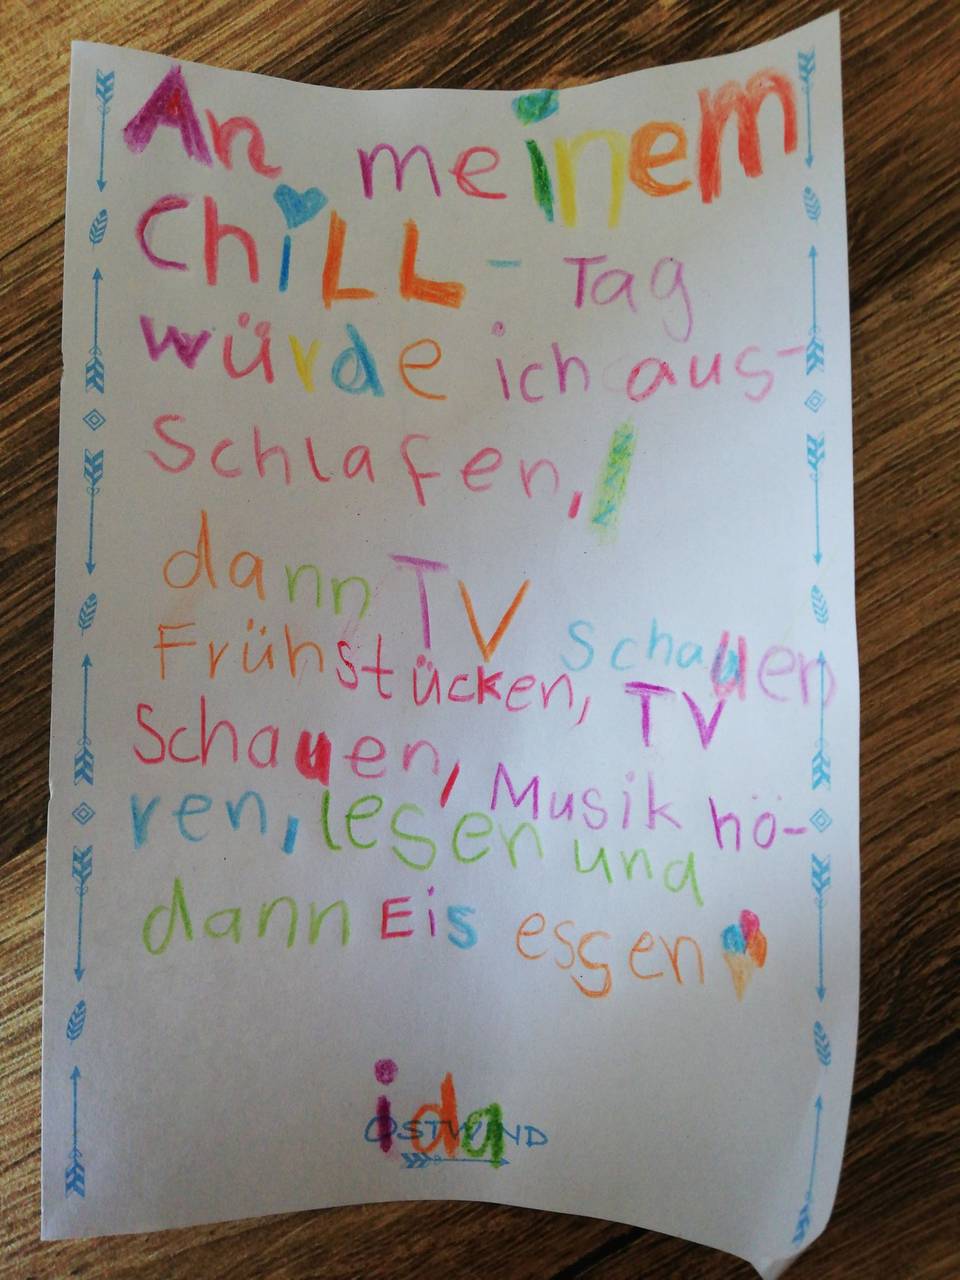 An meinem
Chill - Tag
würde ich aus-
Schlafen,
dann TV schauen
Frühstücken, TV
Schauen, Musik hö-
ren, lesen und
dann Eis essen
ida
OSTWIND